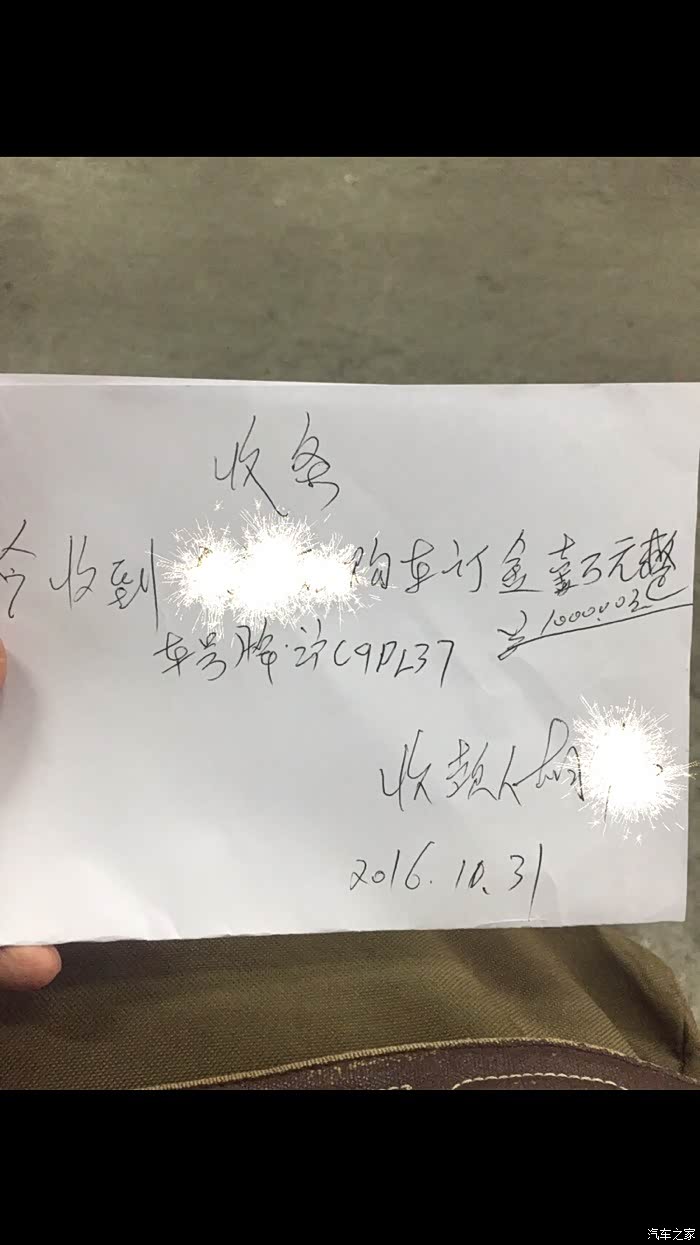 收条
今收到 购车订金壹万元整
¥10000.00元
车号 C9PL37
收款人
2016.10.31
汽车之家